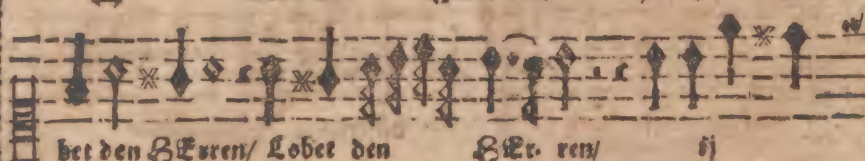 bet den HErren/ Lobet den HEr- ren/ ij